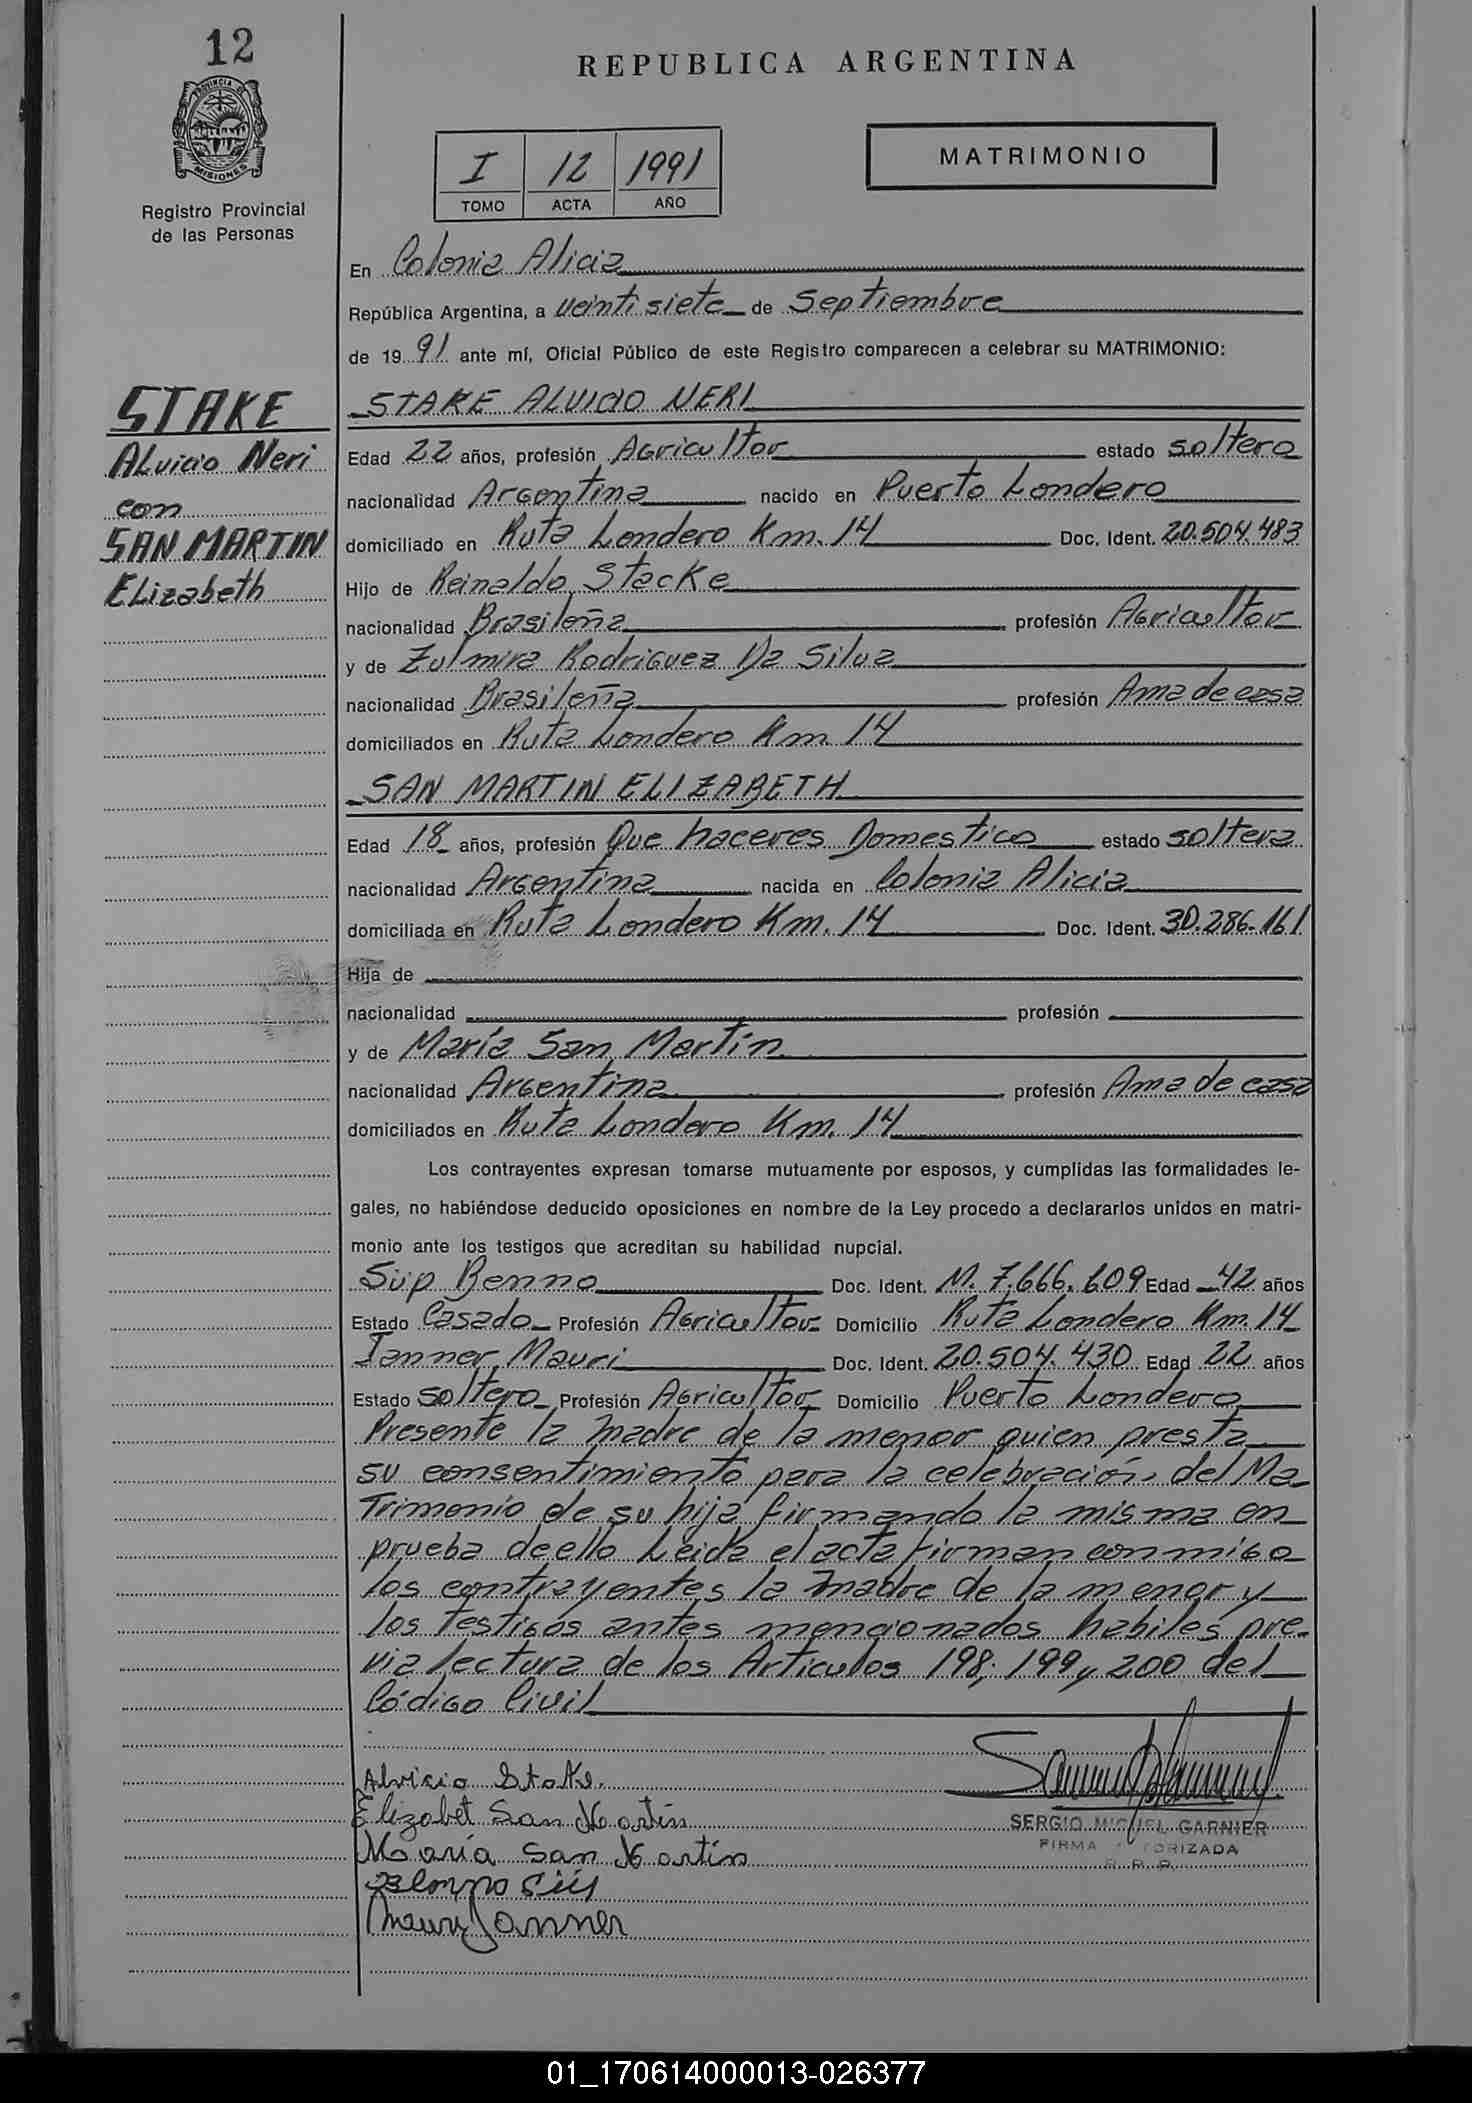 12
PROVINCIA DE
MISIONES
Registro Provincial
de las Personas
REPUBLICA ARGENTINA
I 12 1991
TOMO ACTA AÑO
MATRIMONIO
En Colonia Alicia
República Argentina, a veintisiete de Septiembre
de 19 91 ante mí, Oficial Público de este Registro comparecen a celebrar su MATRIMONIO:
STAKE
Aluicio Neri
con
SAN MARTIN
Elizabeth
STAKE ALUICIO NERI
Edad 22 años, profesión Agricultor estado soltero
nacionalidad Argentina nacido en Puerto Londero
domiciliado en Ruta Londero Km. 14 Doc. Ident. 20.504.483
Hijo de Reinaldo Stacke
nacionalidad Brasileña profesión Agricultor
y de Zulmira Rodriguez Da Silva
nacionalidad Brasileña profesión Ama de casa
domiciliados en Ruta Londero Km 14
SAN MARTIN ELIZABETH
Edad 18 años, profesión Que haceres Domestico estado soltera
nacionalidad Argentina nacida en Colonia Alicia
domiciliada en Ruta Londero Km. 14 Doc. Ident. 30.286.161
Hija de
nacionalidad profesión
y de María San Martín
nacionalidad Argentina profesión Ama de casa
domiciliados en Ruta Londero Km. 14
Los contrayentes expresan tomarse mutuamente por esposos, y cumplidas las formalidades le-
gales, no habiéndose deducido oposiciones en nombre de la Ley procedo a declararlos unidos en matri-
monio ante los testigos que acreditan su habilidad nupcial.
Süp Benno Doc. Ident. M. 7.666.609 Edad 42 años
Estado Casado Profesión Agricultor Domicilio Ruta Londero Km. 14
Janner Mauri Doc. Ident. 20.504.430 Edad 22 años
Estado soltero Profesión Agricultor Domicilio Puerto Londero
Presente la madre de la menor quien presta
su consentimiento para la celebración del Ma-
trimonio de su hija firmando la misma en
prueba de ello Leida el acta firman conmigo
los contrayentes la madre de la menor y
los testigos antes mencionados habiles pre-
via lectura de los Articulos 198, 199 y 200 del
Código Civil
Alvicio Stake.
Elizabet San Martín
María San Martín
Benno Süp
Mauri Janner
SERGIO MIGUEL GARNIER
FIRMA AUTORIZADA
01_170614000013-026377